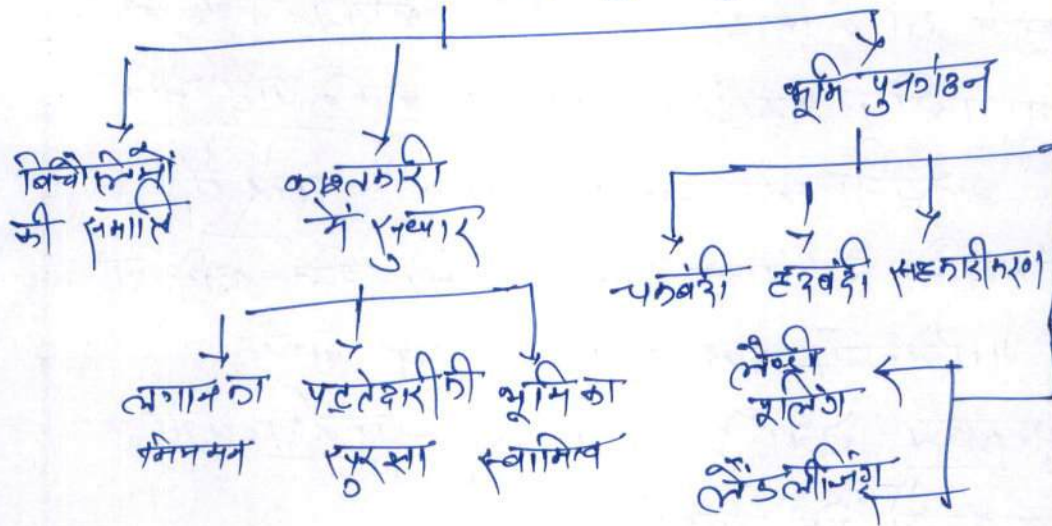 भूमि पुनर्गठन
बिचौलियों
की समाप्ति
काश्तकारी
में सुधार
चकबंदी हदबंदी सहकारीकरण
लगान का
नियमन
पट्टेदारी की
सुरक्षा
भूमि का
स्वामित्व
लैण्ड
पूलिंग
लैंड लीजिंग